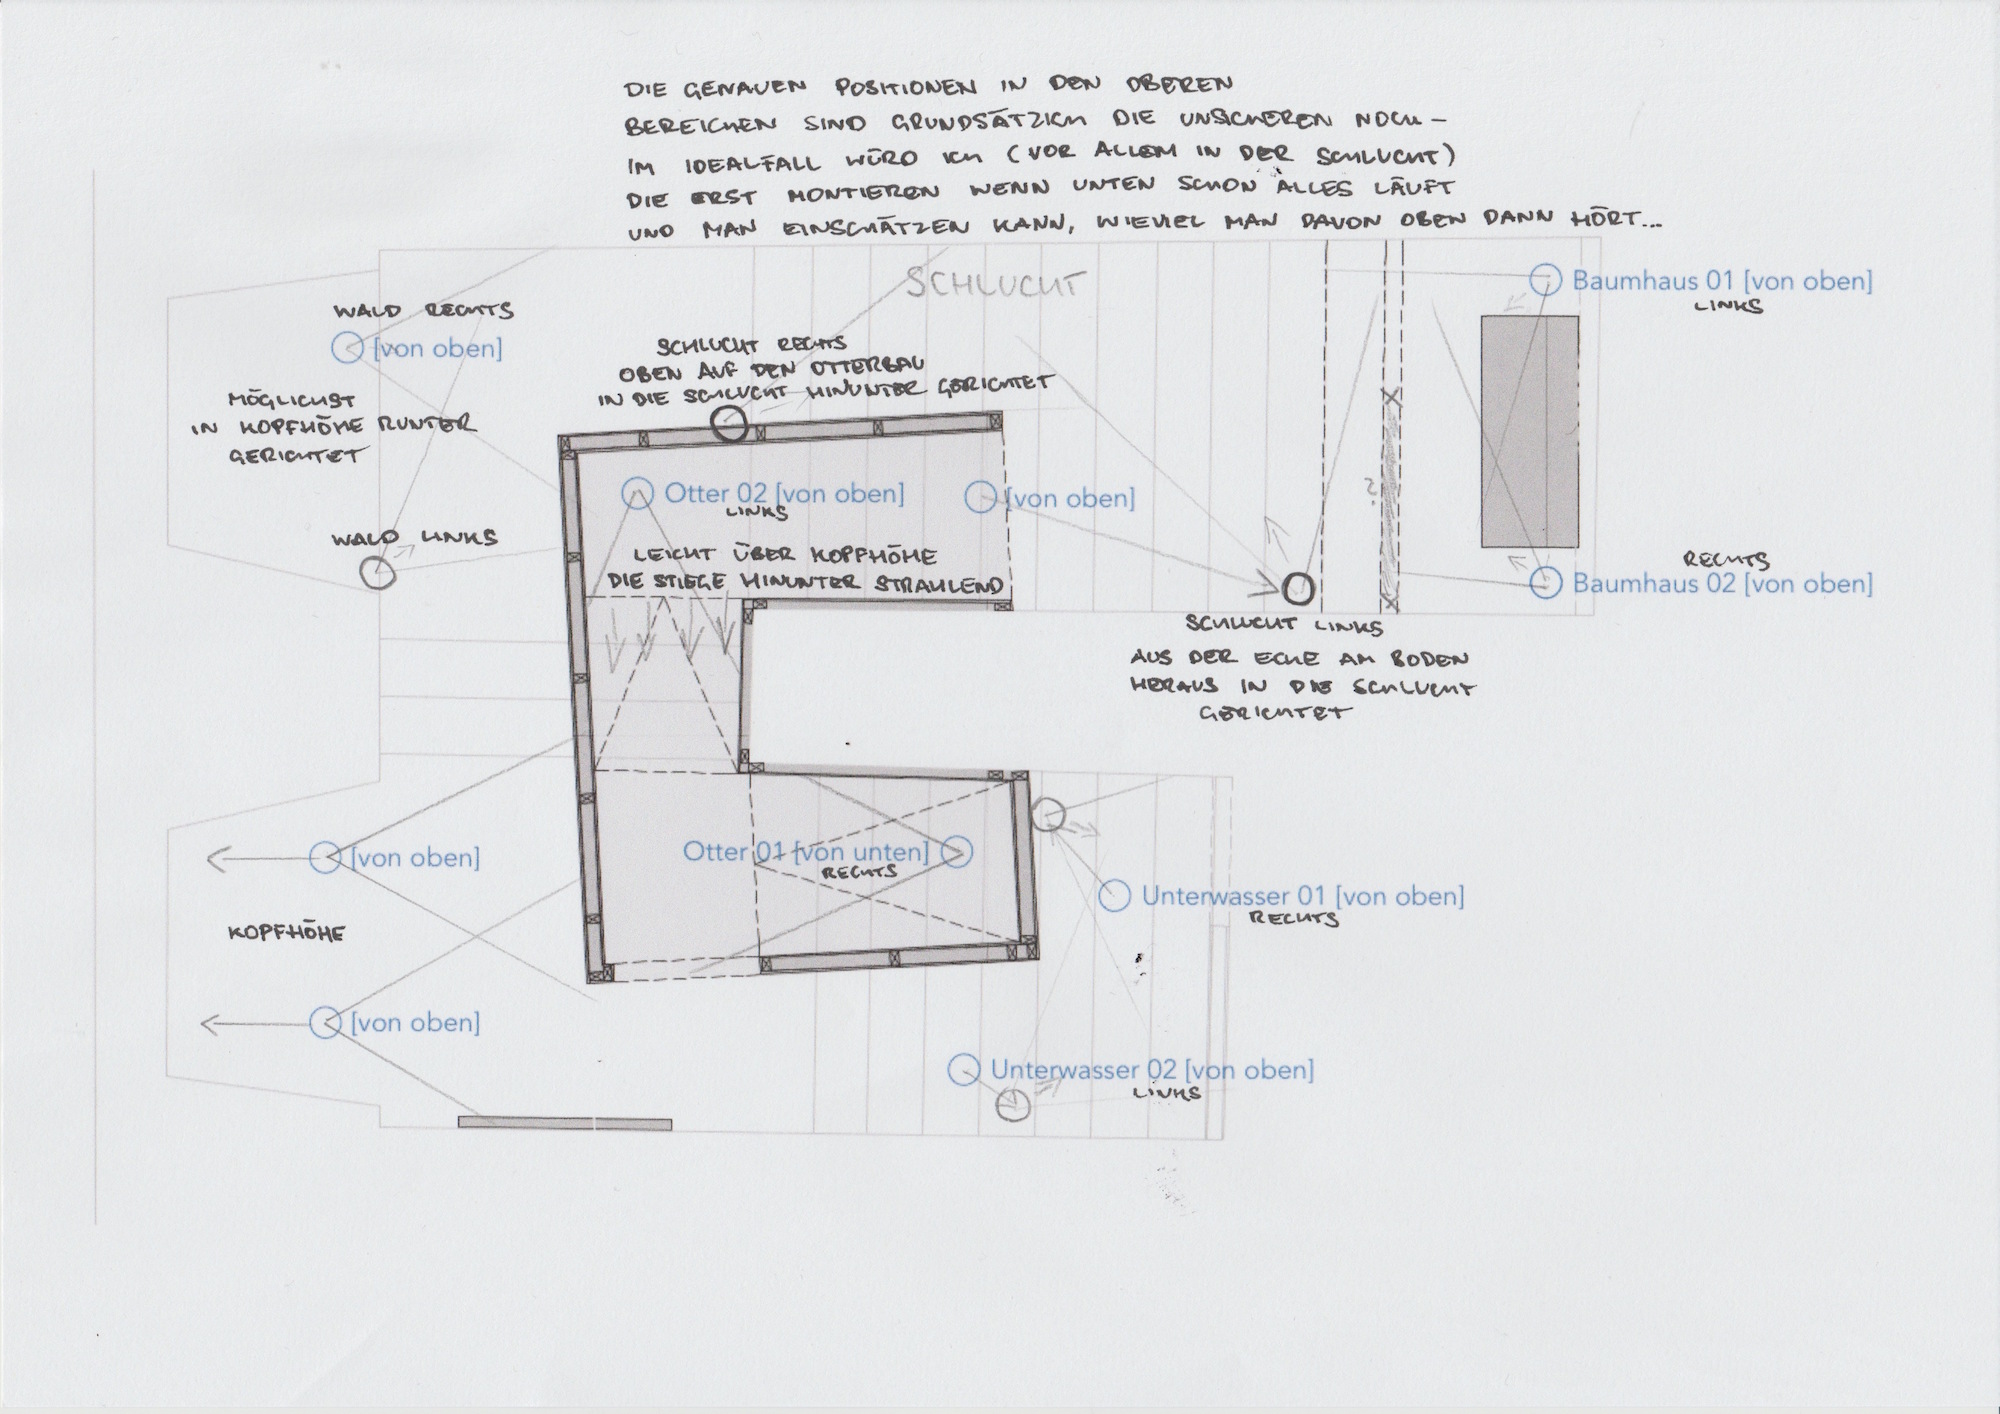 DIE GENAUEN POSITIONEN IN DEN OBEREN
BEREICHEN SIND GRUNDSÄTZICH DIE UNSICHEREN NOCH –
IM IDEALFALL WÜRD ICH (VOR ALLEM IN DER SCHLUCHT)
DIE ERST MONTIEREN WENN UNTEN SCHON ALLES LÄUFT
UND MAN EINSCHÄTZEN KANN, WIEVIEL MAN DAVON OBEN DANN HÖRT...
SCHLUCHT
Baumhaus 01 [von oben]
LINKS
WALD RECHTS
[von oben]
SCHLUCHT RECHTS
OBEN AUF DEN OTTERBAU
IN DIE SCHLUCHT HINUNTER GERICHTET
MÖGLICHST
IN KOPFHÖHE RUNTER
GERICHTET
Otter 02 [von oben]
LINKS
[von oben]
?
WALD LINKS
LEICHT ÜBER KOPFHÖHE
DIE STIEGE HINUNTER STRAHLEND
RECHTS
Baumhaus 02 [von oben]
SCHLUCHT LINKS
AUS DER ECKE AM BODEN
HERAUS IN DIE SCHLUCHT
GERICHTET
[von oben]
Otter 01 [von unten]
RECHTS
Unterwasser 01 [von oben]
RECHTS
KOPFHÖHE
[von oben]
Unterwasser 02 [von oben]
LINKS